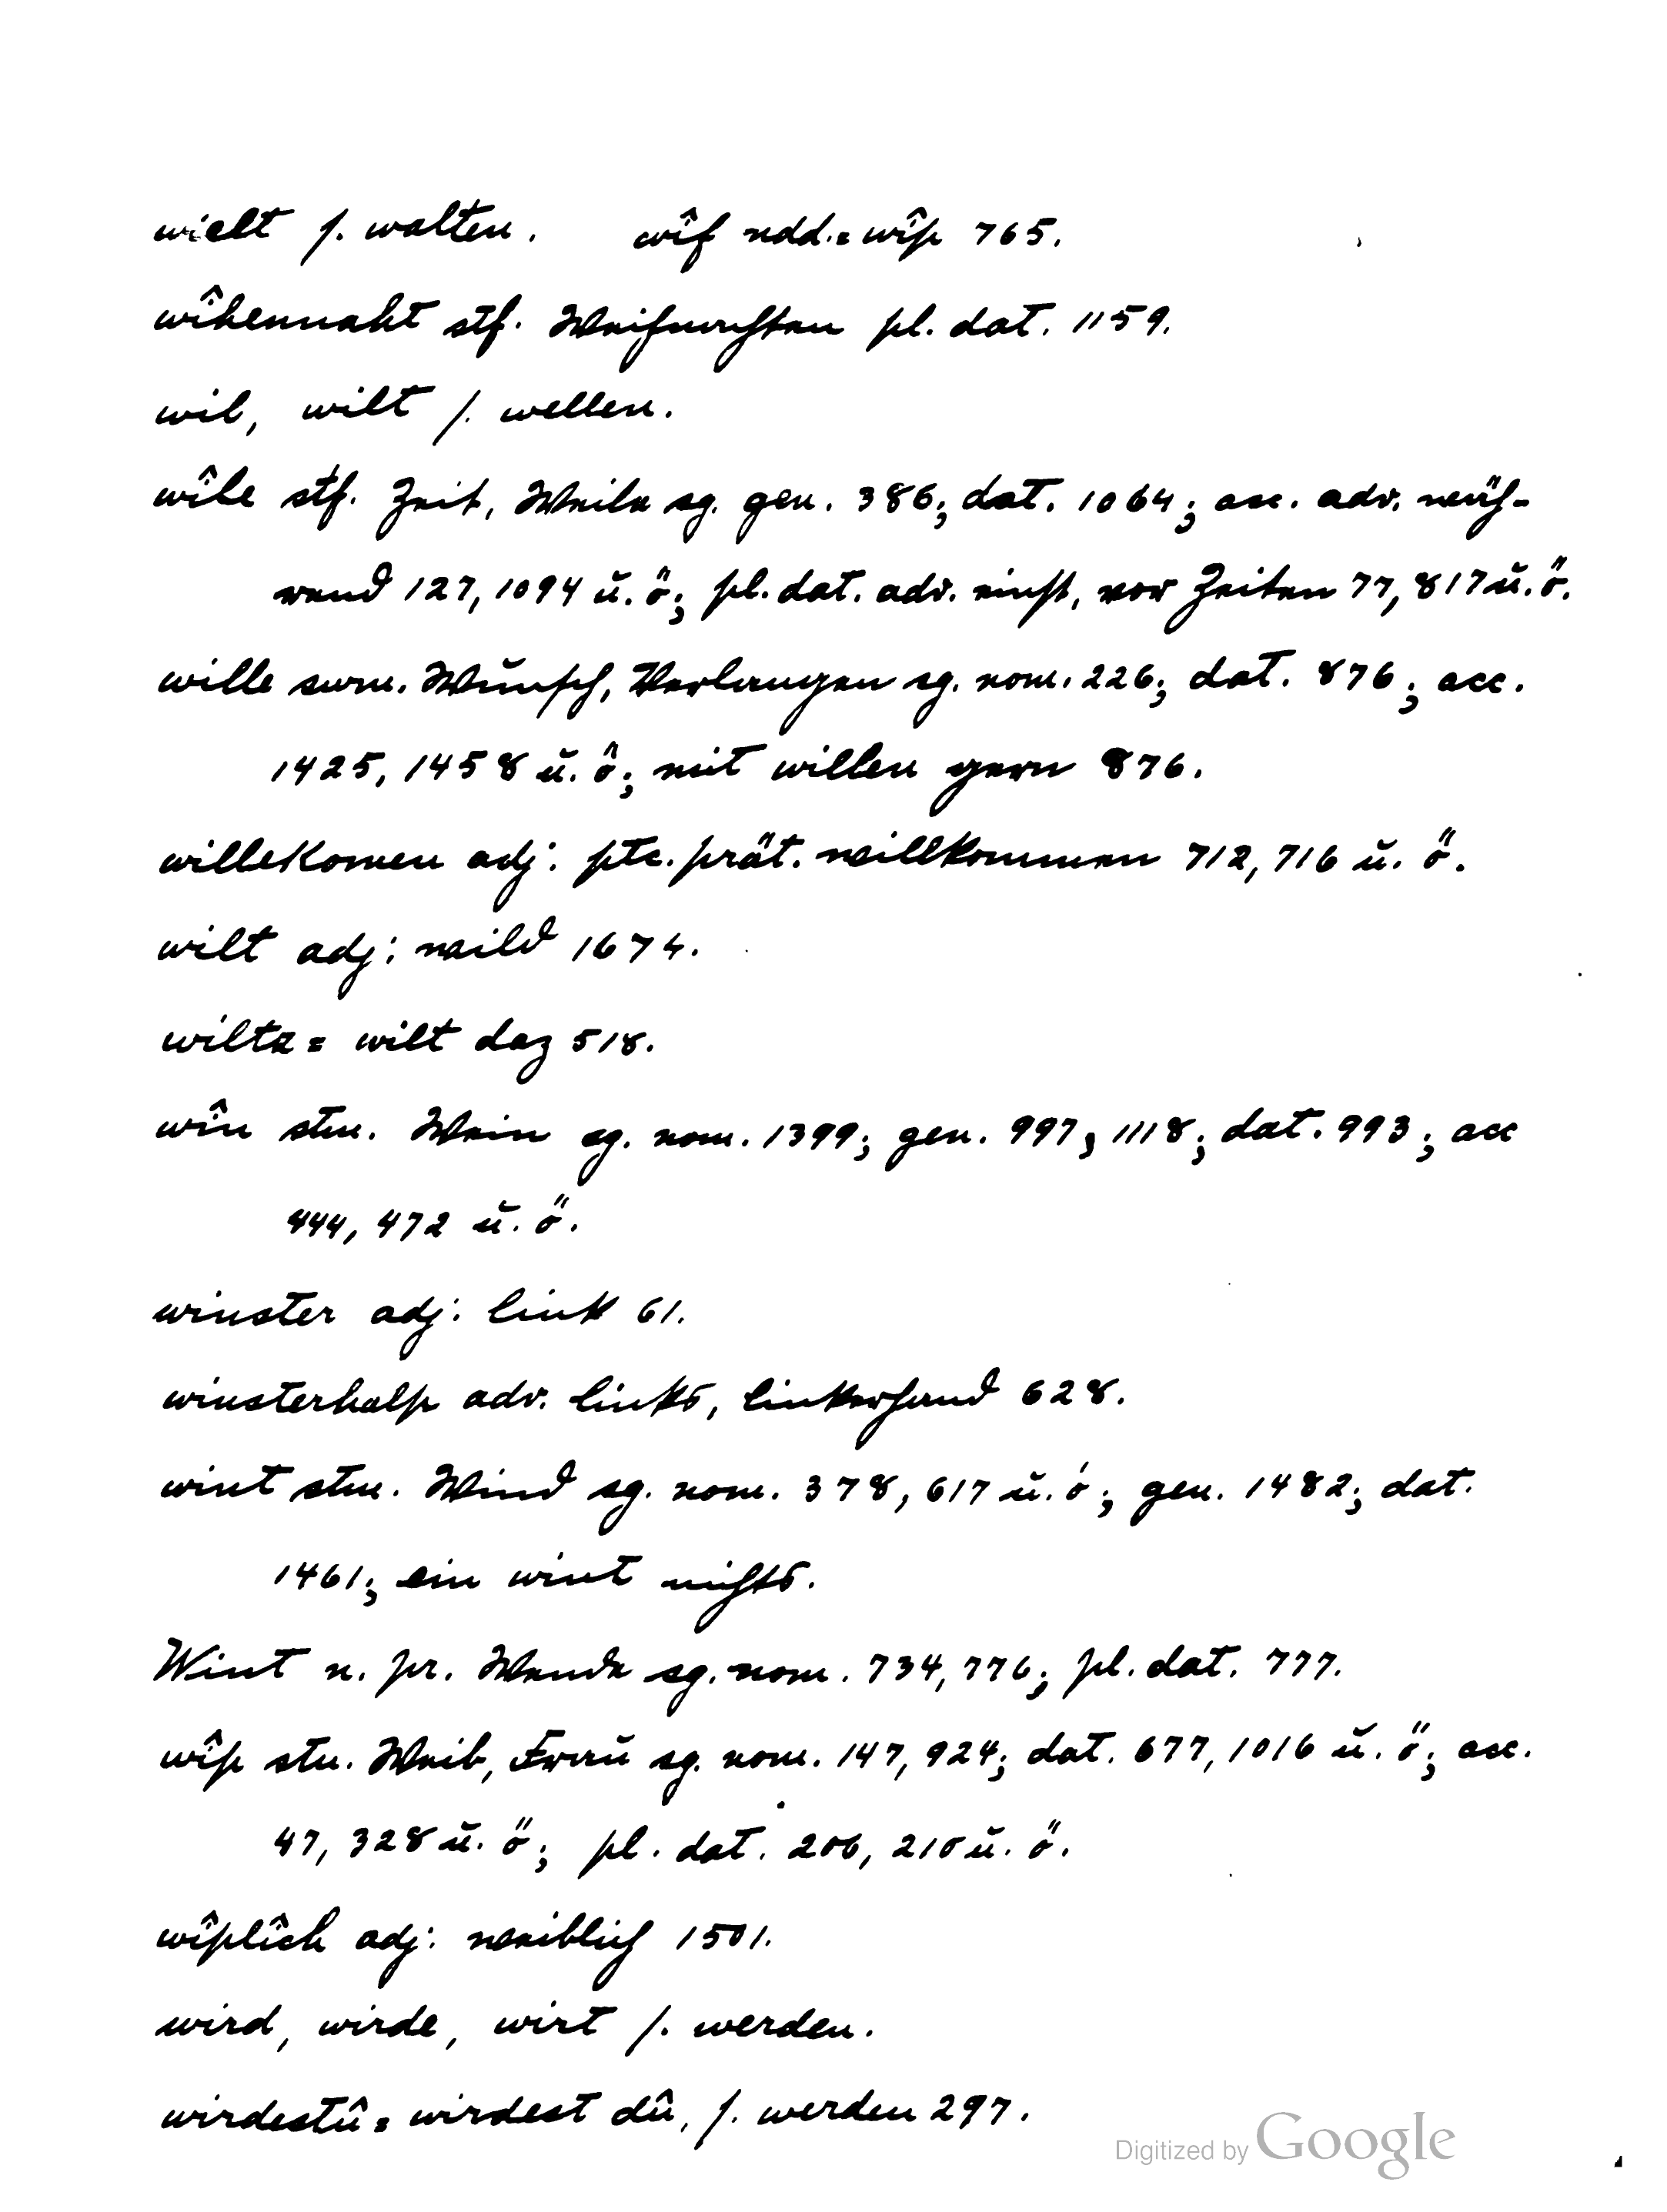 wielt s. walten. wîf ndd. = wîp 765.
wîhennaht stf. Weihnachten pl. dat. 1159.
wil, wilt s. wellen.
wîle stf. Zeit, Weile sg. gen. 386; dat. 1064; acc. adv. wäh-
rend 127, 1094 u. ö.; pl. dat. adv. einst, vor Zeiten 77, 817 u. ö.
wille swm. Wunsch, Verlangen sg. nom. 226; dat. 876; acc.
1425, 1458 u. ö.; mit willen gern 876.
willekomen adj. ptc. prät. willkommen 712, 716 u. ö.
wilt adj. wild 1674.
wiltz = wilt daz 518.
wîn stm. Wein sg. nom. 1399; gen. 997, 1118; dat. 993; acc
444, 472 u. ö.
winster adj. link 61.
winsterhalp adv. links, linkerhand 628.
wint stm. Wind sg. nom. 378, 617 u. ö; gen. 1482; dat.
1461; ein wint nichts.
Wint n. pr. Wende sg. nom. 734, 776; pl. dat. 777.
wîp stn. Weib, Frau sg. nom. 147, 924; dat. 677, 1016 u. ö.; acc.
47, 328 u. ö.; pl. dat. 206, 210 u. ö.
wîplîch adj. weiblich 1501.
wird, wirde, wirt s. werden.
wirdestû = wirdest dû, s. werden 297.
Digitized by Google